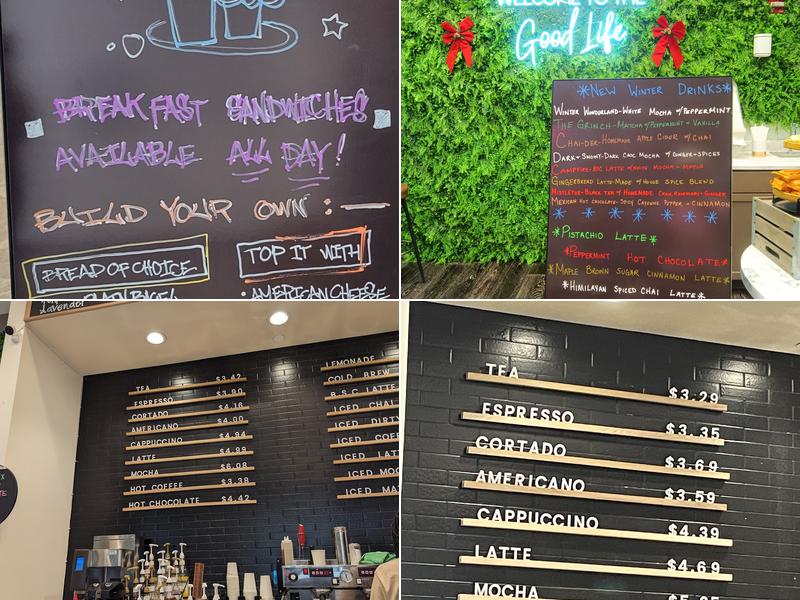 BREAKFAST SANDWICHES
AVAILABLE ALL DAY!
BUILD YOUR OWN:
BREAD OF CHOICE
TOP IT WITH
PLAIN BAGEL
• AMERICAN CHEESE
WELCOME TO THE
Good Life
*NEW WINTER DRINKS*
WINTER WONDERLAND-WHITE MOCHA W/PEPPERMINT
THE GRINCH-MATCHA W/PEPPERMINT + VANILLA
CHAI-DER-HOMEMADE APPLE CIDER W/CHAI
DARK+SNOWY-DARK CHOC MOCHA W/GINGER+SPICES
CAMPFIRE-BSC LATTE W/WHITE MOCHA + MAPLE
GINGERBREAD LATTE-MADE W/HOUSE SPICE BLEND
MISTLETOE-BLACK TEA W/HOMEMADE GINGER
MEXICAN HOT CHOCOLATE-SPICY CAYENNE PEPPER + CINNAMON
*PISTACHIO LATTE*
*PEPPERMINT HOT CHOCOLATE*
*MAPLE BROWN SUGAR CINNAMON LATTE*
*HIMILAYAN SPICED CHAI LATTE*
Lavender
TEA $3.42
ESPRESSO $3.90
CORTADO $4.16
AMERICANO $4.00
CAPPUCCINO $4.94
LATTE $4.99
MOCHA $6.08
HOT COFFEE $3.38
HOT CHOCOLATE $4.42
LEMONADE
COLD BREW
B.S.C. LATTE
ICED CHAI
ICED DIRTY
ICED COF
ICED LAT
ICED MOC
ICED MA
TEA $3.29
ESPRESSO $3.35
CORTADO $3.69
AMERICANO $3.59
CAPPUCCINO $4.39
LATTE $4.69
MOCHA